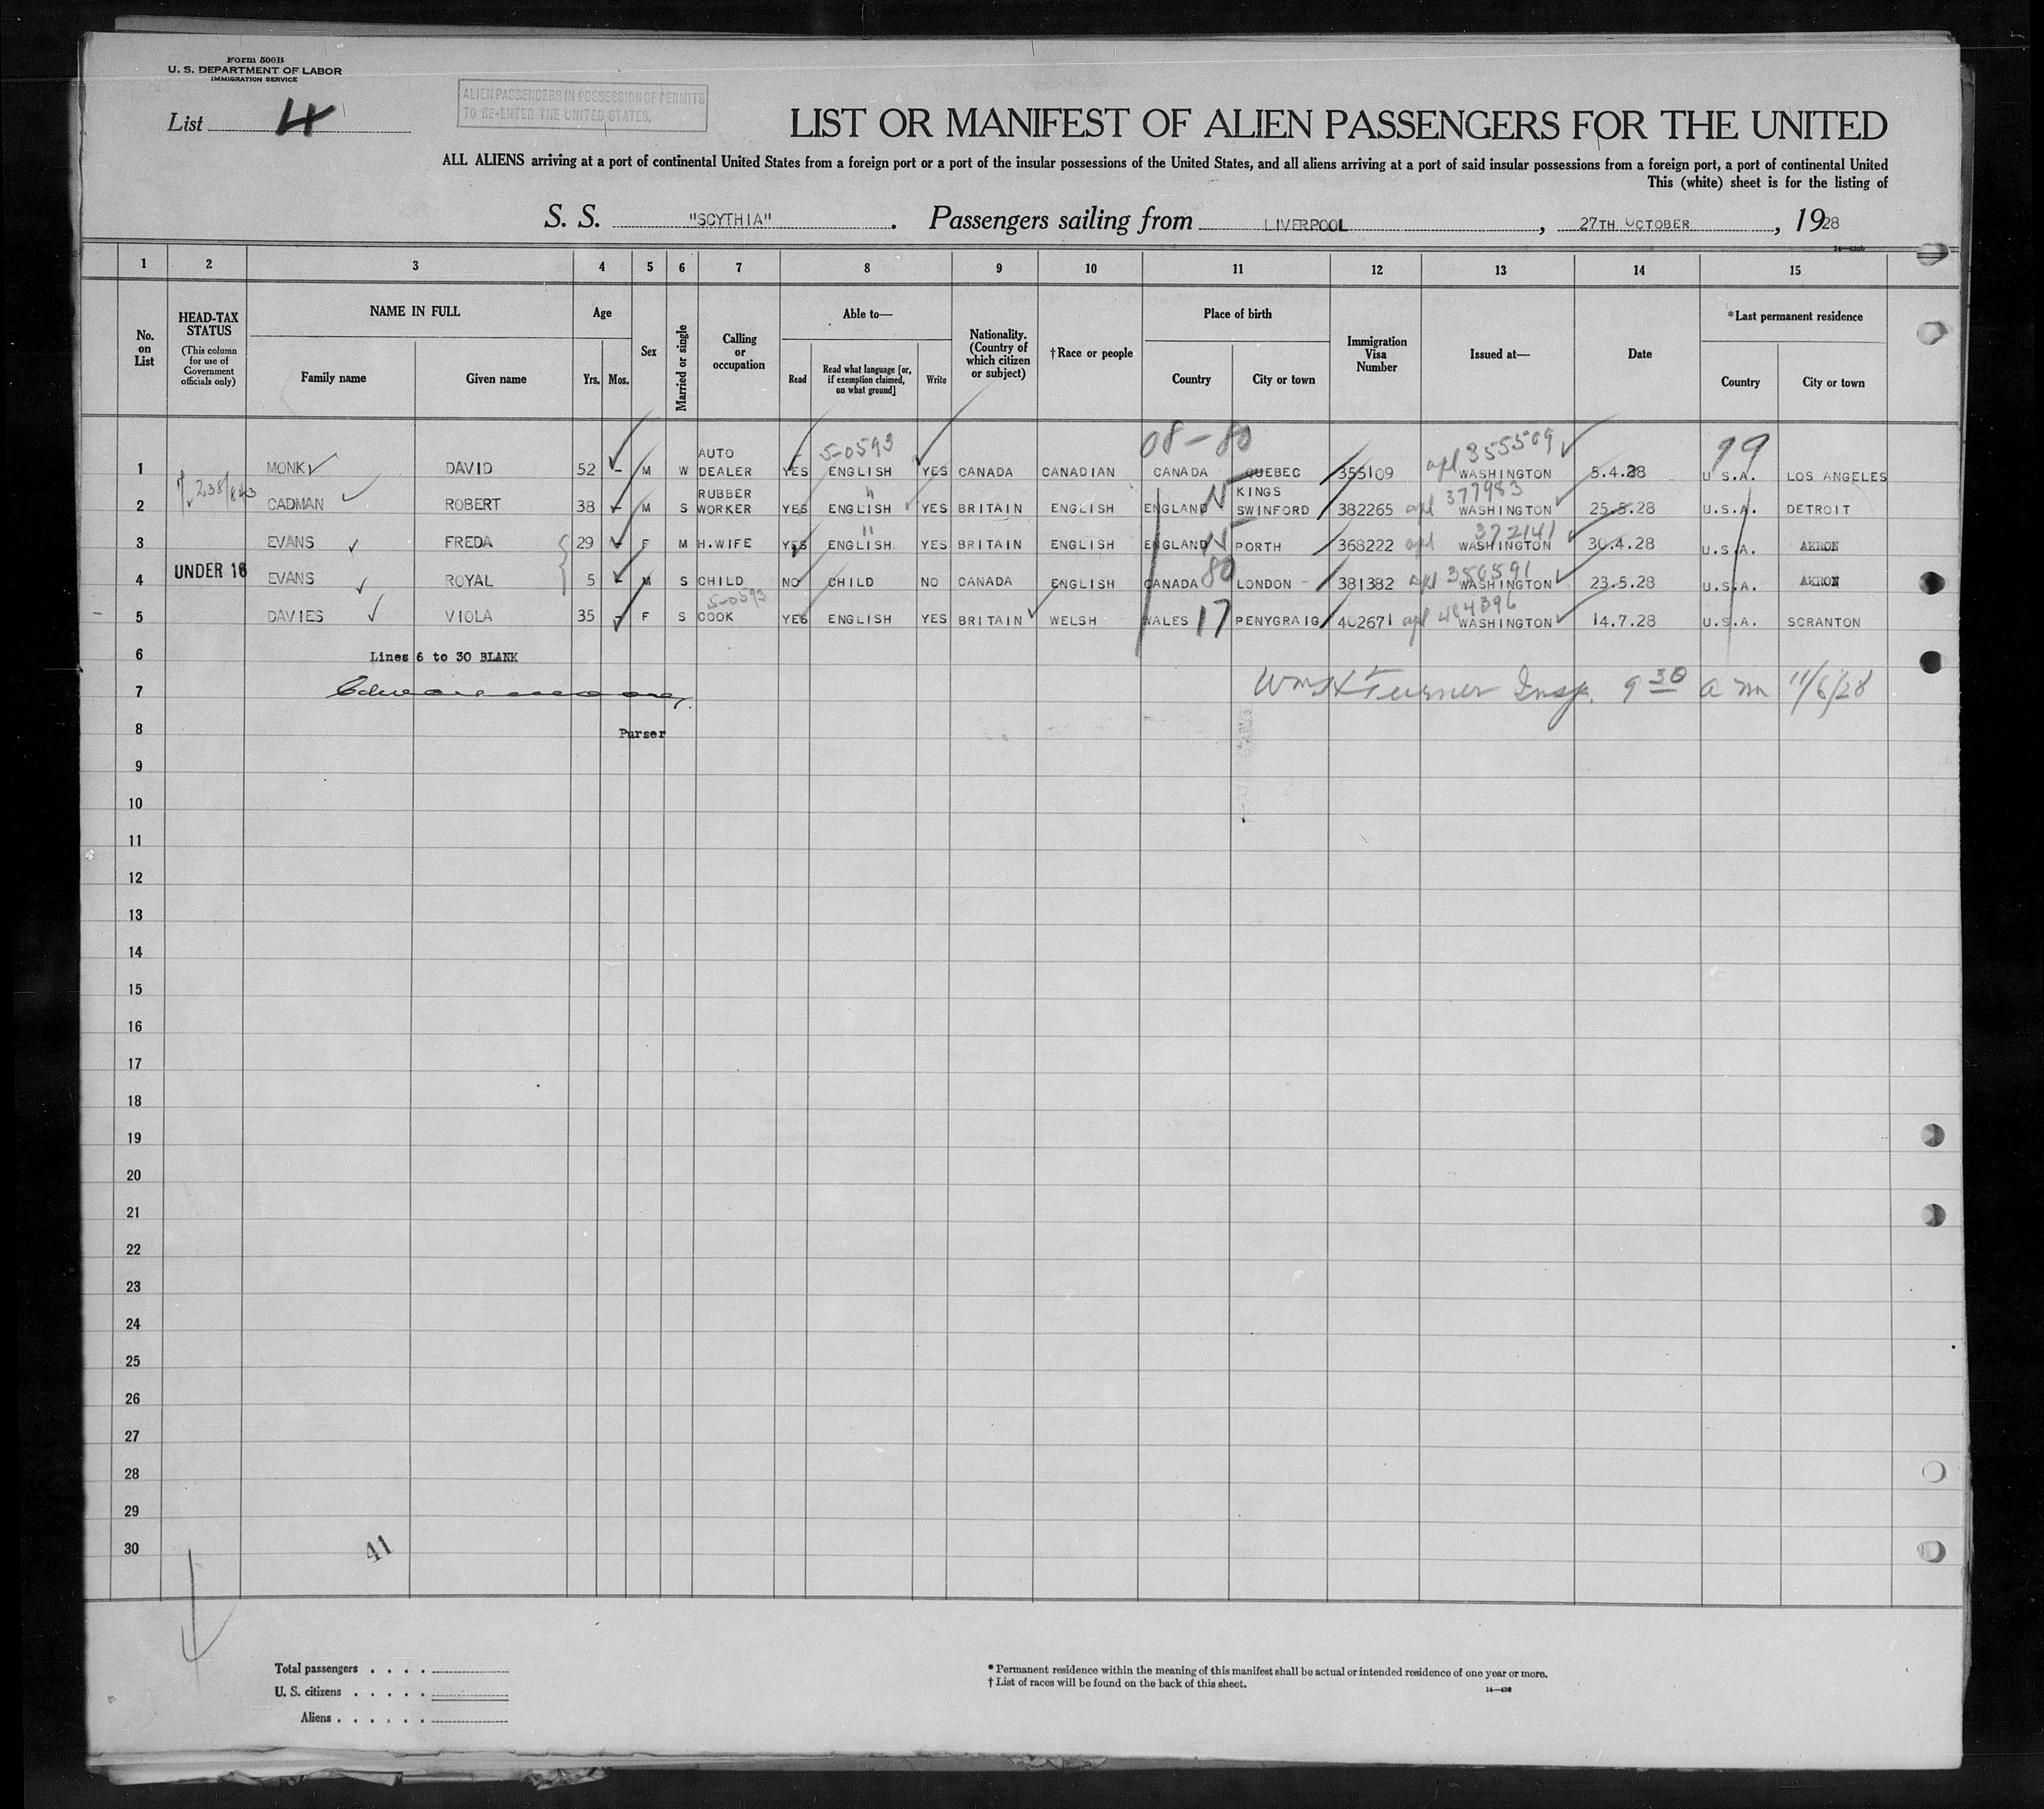 Form 500B
U. S. DEPARTMENT OF LABOR
IMMIGRATION SERVICE
List 4
ALIEN PASSENGERS IN POSSESSION OF PERMITS
TO RE-ENTER THE UNITED STATES.
LIST OR MANIFEST OF ALIEN PASSENGERS FOR THE UNITED
ALL ALIENS arriving at a port of continental United States from a foreign port or a port of the insular possessions of the United States, and all aliens arriving at a port of said insular possessions from a foreign port, a port of continental United
This (white) sheet is for the listing of
S. S. "SCYTHIA". Passengers sailing from LIVERPOOL, 27TH OCTOBER, 1928
1 2 3 4 5 6 7 8 9 10 11 12 13 14 15
No. on List
HEAD-TAX STATUS
(This column for use of Government officials only)
NAME IN FULL
Family name Given name
Age
Yrs. Mos.
Sex
Married or single
Calling or occupation
Able to—
Read
Read what language [or, if exemption claimed, on what ground]
Write
Nationality. (Country of which citizen or subject)
†Race or people
Place of birth
Country City or town
Immigration Visa Number
Issued at—
Date
*Last permanent residence
Country City or town
5-0593 08-80 355509 79
1 MONK DAVID 52 - M W AUTO DEALER YES ENGLISH YES CANADA CANADIAN CANADA QUEBEC 355109 WASHINGTON 5.4.28 U.S.A. LOS ANGELES
238/843 " N 377983
2 CADMAN ROBERT 38 - M S RUBBER WORKER YES ENGLISH YES BRITAIN ENGLISH ENGLAND KINGS SWINFORD 382265 WASHINGTON 25.5.28 U.S.A. DETROIT
" N 372141
3 EVANS FREDA 29 - F M H.WIFE YES ENGLISH YES BRITAIN ENGLISH ENGLAND PORTH 368222 WASHINGTON 30.4.28 U.S.A. AKRON
UNDER 16 80
4 EVANS ROYAL 5 - M S CHILD NO CHILD NO CANADA ENGLISH CANADA LONDON 381382 WASHINGTON 23.5.28 U.S.A. AKRON
5-0593 17 404396
5 DAVIES VIOLA 35 - F S COOK YES ENGLISH YES BRITAIN WELSH WALES PENYGRAIG 402671 WASHINGTON 14.7.28 U.S.A. SCRANTON
6 Lines 6 to 30 BLANK
7 Wm H Turner Insp. 9 30 a m 11/6/28
8 Purser
9
10
11
12
13
14
15
16
17
18
19
20
21
22
23
24
25
26
27
28
29
30
41
Total passengers
U. S. citizens
Aliens
* Permanent residence within the meaning of this manifest shall be actual or intended residence of one year or more.
† List of races will be found on the back of this sheet.
14—430